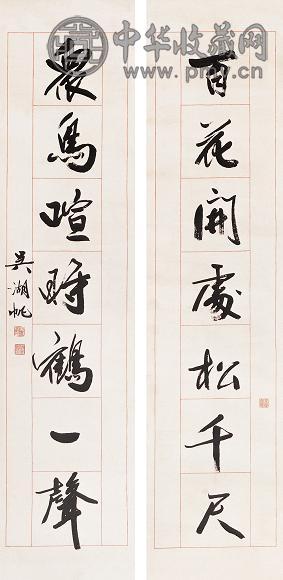 中华收藏网
www.pmy.cn
百花開處松千尺
衆鳥喧時鶴一聲
吳湖帆